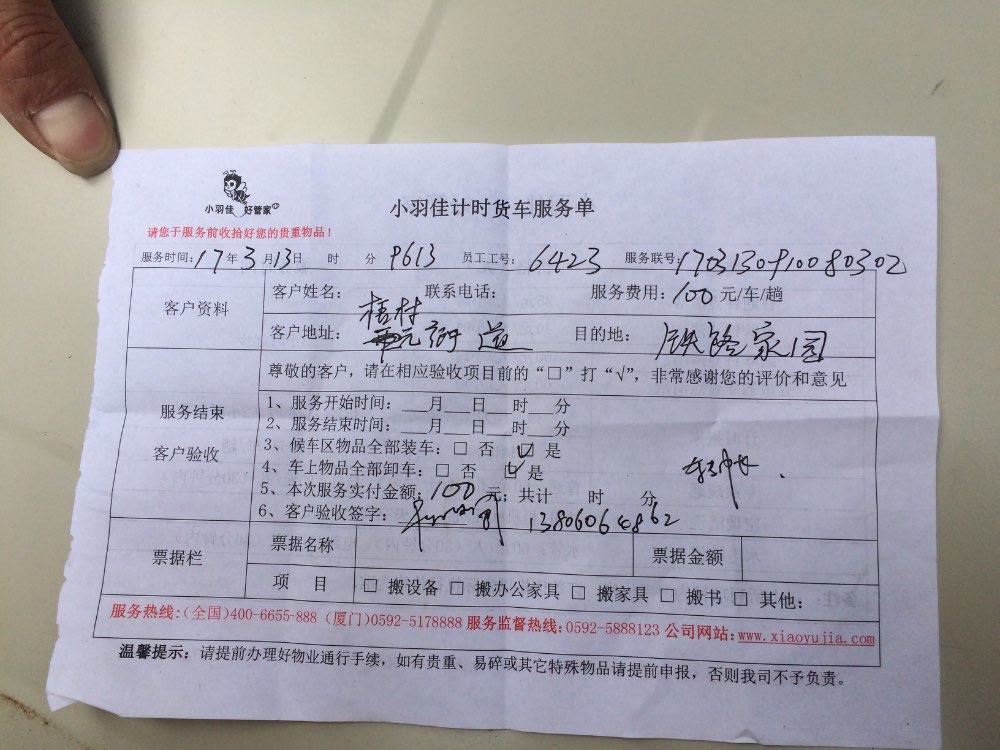 小羽佳 好管家
小羽佳计时货车服务单
请您于服务前收拾好您的贵重物品！
服务时间：17年3月13日 时 分 P613 员工工号：6423 服务联号：1703130910080302
客户资料
客户姓名： 联系电话： 服务费用：100元/车/趟
梧村
客户地址： 街道 目的地：铁路家园
尊敬的客户，请在相应验收项目前的“□”打“√”，非常感谢您的评价和意见
服务结束
客户验收
1、服务开始时间：___月___日___时___分
2、服务结束时间：___月___日___时___分
3、候车区物品全部装车：□ 否 ☑ 是
4、车上物品全部卸车：□ 否 ☑ 是
5、本次服务实付金额：100元；共计 时 分
6、客户验收签字： 13806064862
票据栏
票据名称 票据金额
项 目 □ 搬设备 □ 搬办公家具 □ 搬家具 □ 搬书 □ 其他：
服务热线：(全国)400-6655-888 (厦门)0592-5178888 服务监督热线：0592-5888123 公司网站：www.xiaoyujia.com
温馨提示：请提前办理好物业通行手续，如有贵重、易碎或其它特殊物品请提前申报，否则我司不予负责。